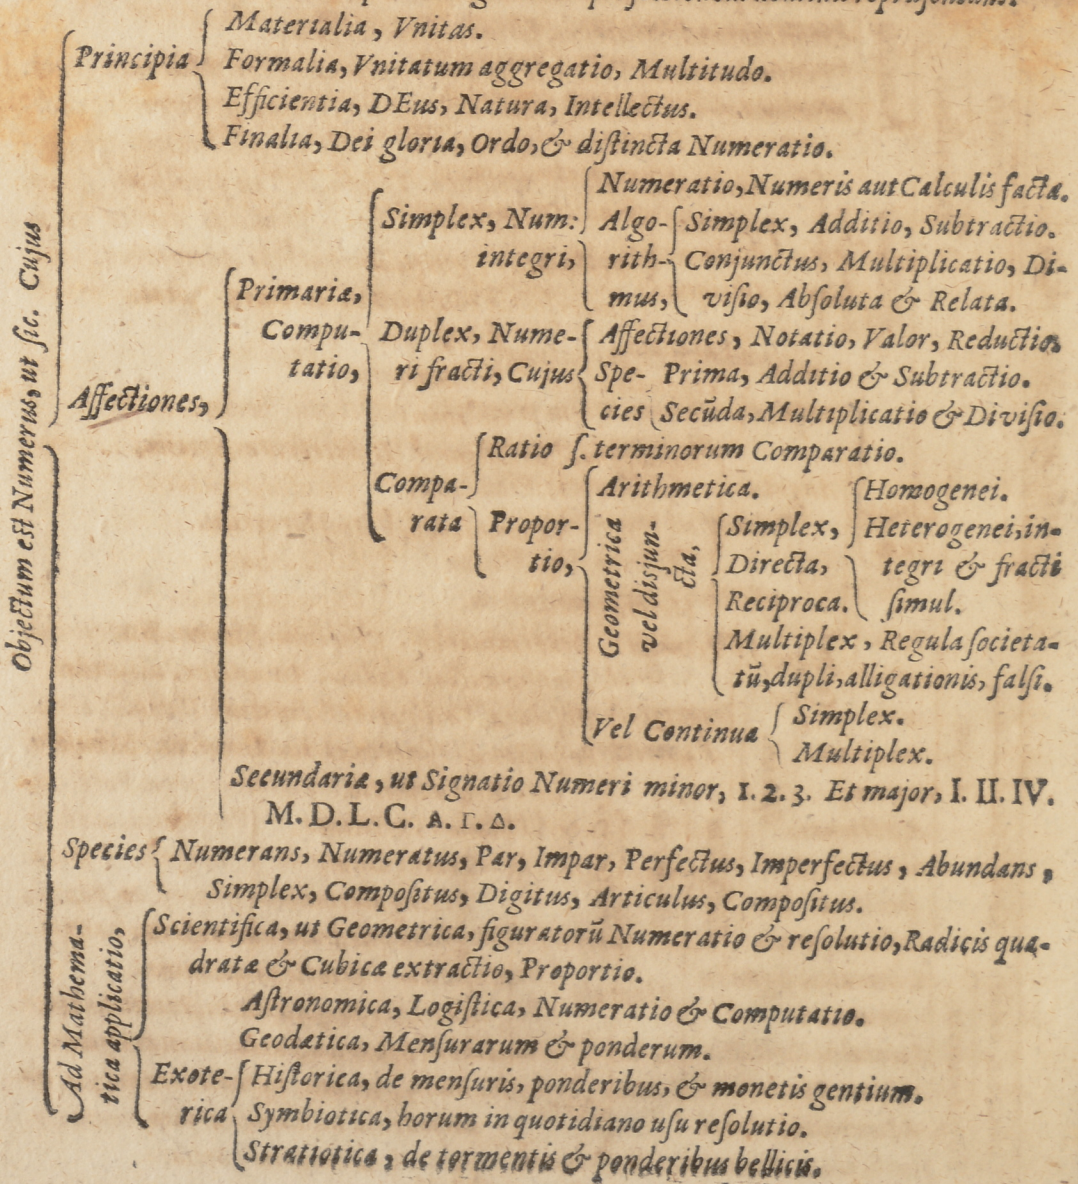 Objectum est Numerus, ut ſic. Cujus
Principia
Materialia, Vnitas.
Formalia, Vnitatum aggregatio, Multitudo.
Efficientia, DEus, Natura, Intellectus.
Finalia, Dei gloria, Ordo, & diſtincta Numeratio.
Affectiones,
Primariæ,
Compu-
tatio,
Simplex, Num:
integri,
Numeratio, Numeris aut Calculis facta.
Algo-
rith-
mus,
Simplex, Additio, Subtractio.
Conjunctus, Multiplicatio, Di-
viſio, Abſoluta & Relata.
Duplex, Nume-
ri fracti, Cujus
Affectiones, Notatio, Valor, Reductio.
Spe-
cies
Prima, Additio & Subtractio.
Secūda, Multiplicatio & Diviſio.
Compa-
rata
Ratio ſ. terminorum Comparatio.
Propor-
tio,
Arithmetica.
Geometrica
vel disjun-
cta,
Simplex,
Directa,
Reciproca.
Homogenei.
Heterogenei, in-
tegri & fracti
ſimul.
Multiplex, Regula ſocieta-
tū, dupli, alligationis, falſi.
Vel Continua
Simplex.
Multiplex.
Secundariæ, ut Signatio Numeri minor, 1. 2. 3. Et major, I. II. IV.
M. D. L. C. Α. Γ. Δ.
Species
Numerans, Numeratus, Par, Impar, Perfectus, Imperfectus, Abundans,
Simplex, Compoſitus, Digitus, Articulus, Compoſitus.
Ad Mathema-
tica applicatio,
Scientifica, ut Geometrica, figuratorū Numeratio & reſolutio, Radicis qua-
dratæ & Cubicæ extractio, Proportio.
Aſtronomica, Logiſtica, Numeratio & Computatio.
Geodætica, Menſurarum & ponderum.
Exote-
rica
Hiſtorica, de menſuris, ponderibus, & monetis gentium.
Symbiotica, horum in quotidiano uſu reſolutio.
Stratiotica, de tormentis & ponderibus bellicis.